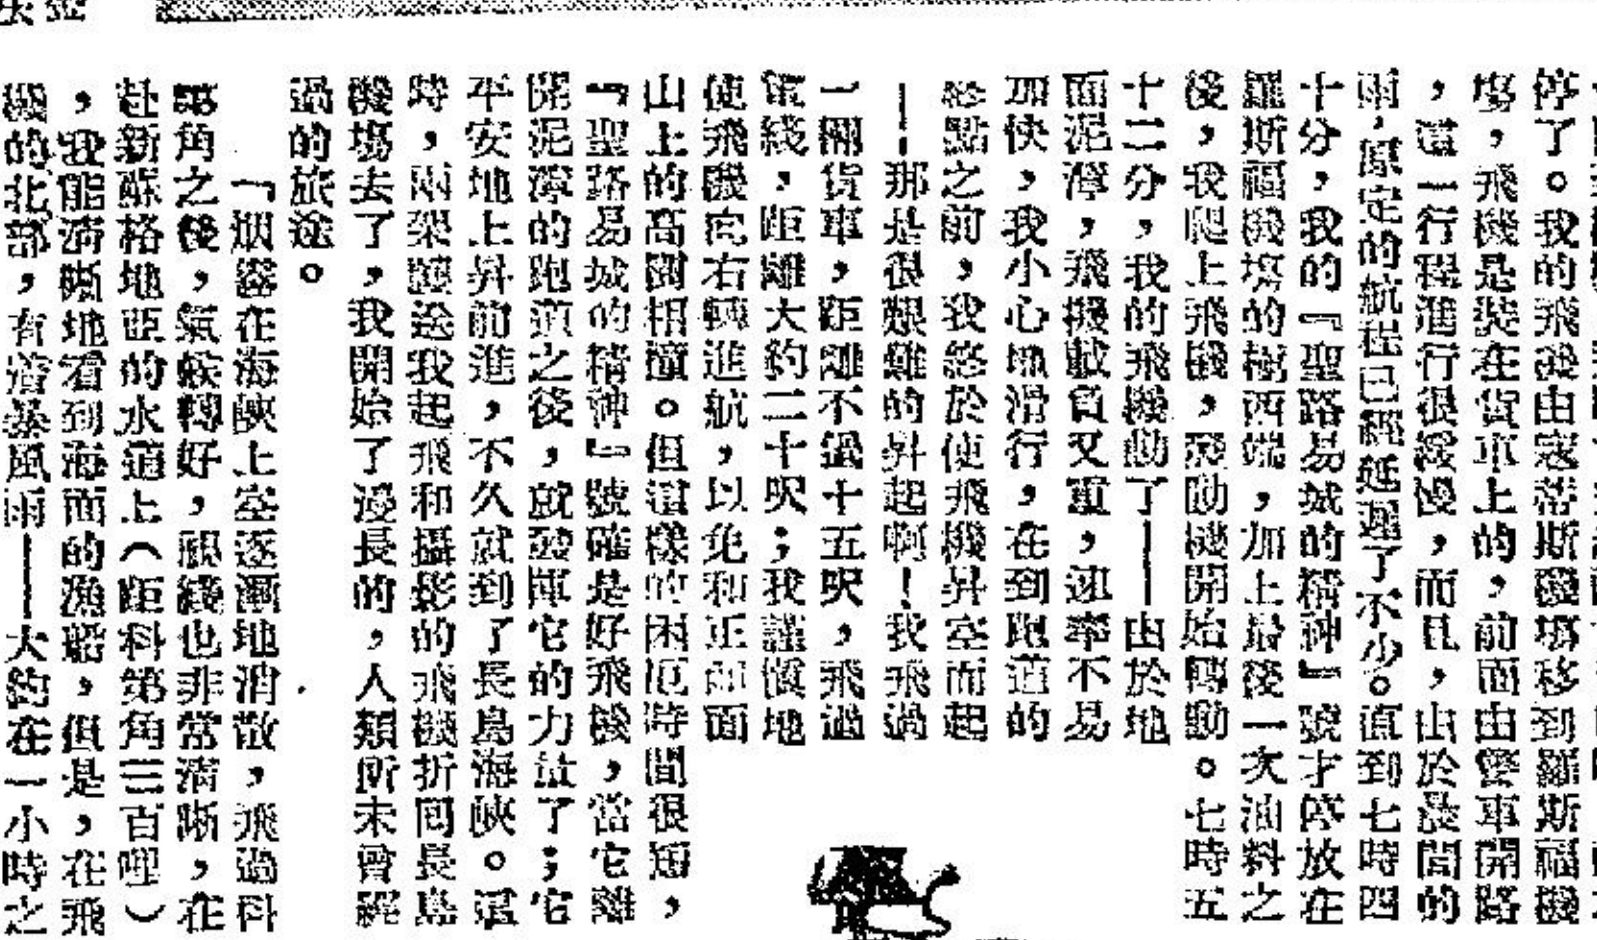 停了。我的飛機由寇蒂斯機場移到羅斯福機
場，飛機是裝在貨車上的，前面由警車開路
，這一行程進行很緩慢，而且，由於晨間的
雨，原定的航程已經延遲了不少。直到七時四
十分，我的『聖路易城的精神』號才停放在
羅斯福機場的極西端，加上最後一次油料之
後，我爬上飛機，發動機開始轉動。七時五
十二分，我的飛機動了——由於地
面泥濘，飛機載負又重，速率不易
加快，我小心地滑行，在到跑道的
終點之前，我終於使飛機昇空而起
——那是很艱難的昇起啊！我飛過
一輛貨車，距離不過十五呎，飛過
電綫，距離大約二十呎；我謹慎地
使飛機向右轉進航，以免和正如面
山上的高樹相撞。但這樣的困厄時間很短，
『聖路易城的精神』號確是好飛機，當它離
開泥濘的跑道之後，就發揮它的力量了；它
平安地上昇前進，不久就到了長島海峽。這
時，兩架護送我起飛和攝影的飛機折回長島
機場去了，我開始了漫長的，人類所未曾經
過的旅途。
「烟霧在海峽上空逐漸地消散，飛過科
第角之後，氣候轉好，視綫也非常清晰，在
赴新蘇格地亞的水道上（距科第角三百哩）
，我能清晰地看到海面的漁船，但是，在飛
機的北部，有着暴風雨——大約在一小時之